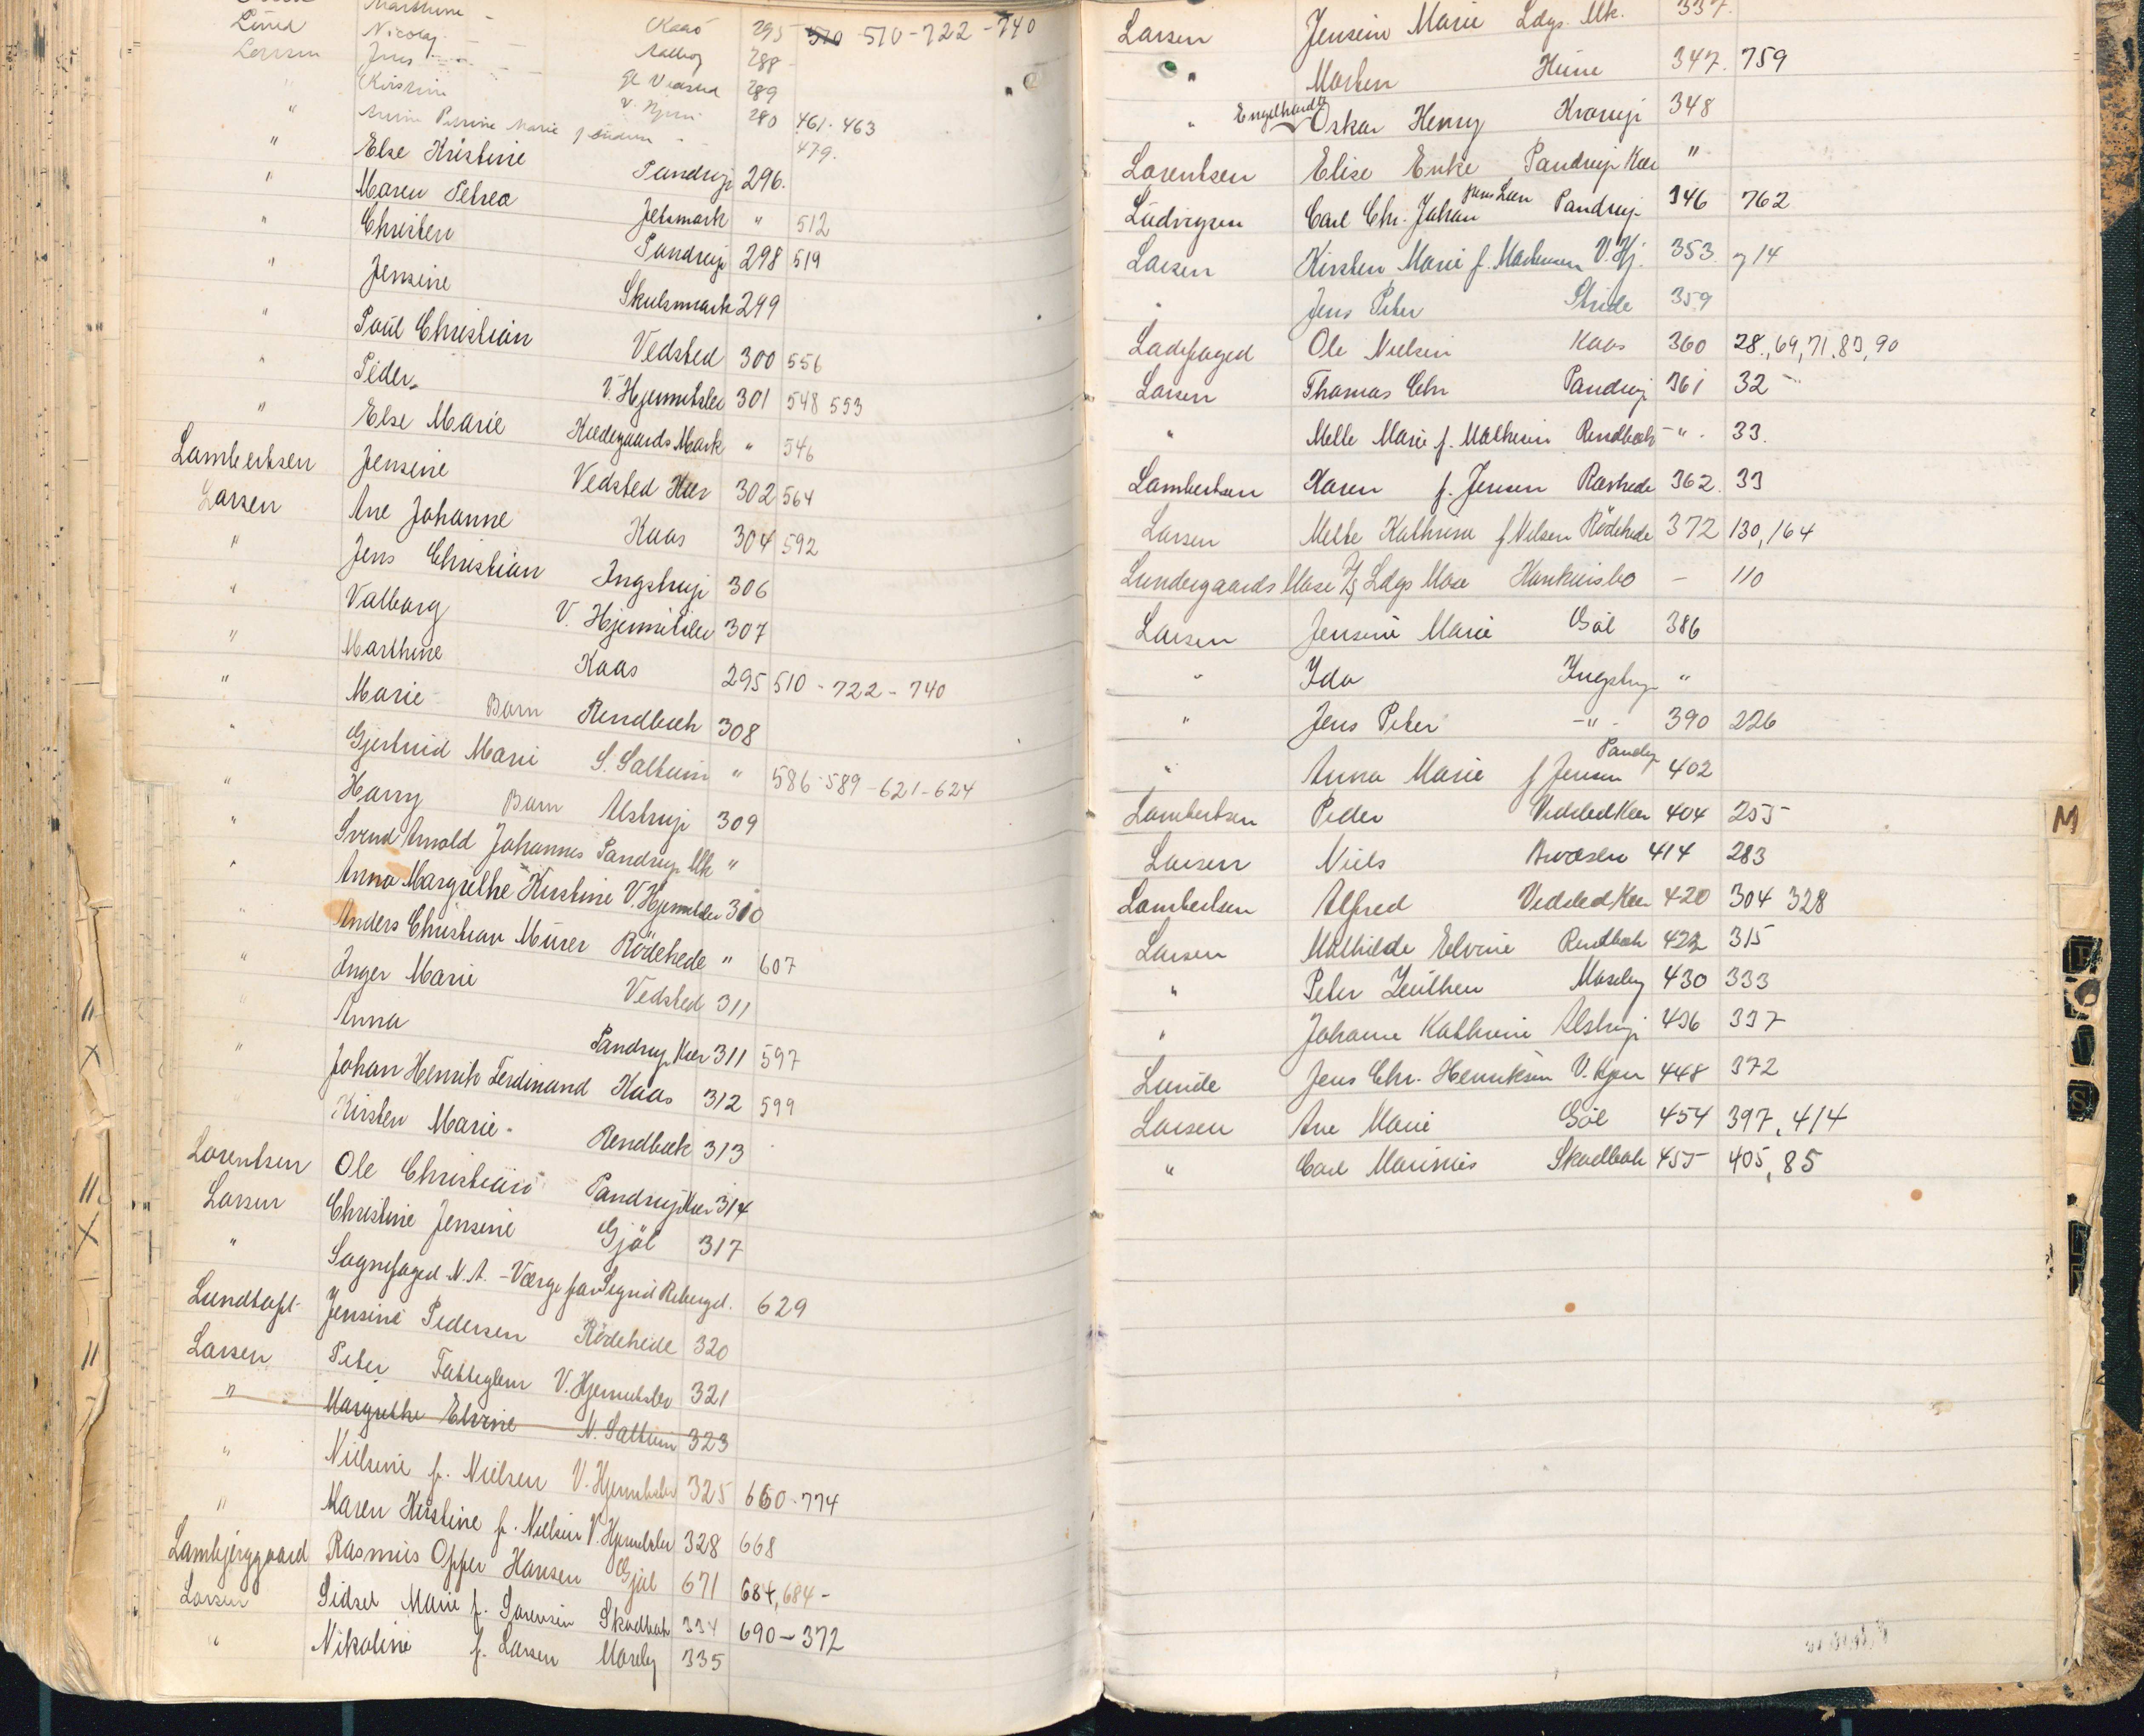 Marthine - Kaas 295 510 510-722-740
Lund Nicolaj Aalborg 288
Larsen Jens - - - Gl. Vedsted 289
" Kirstine V. Hjerm. 280 461-463
" Anine Petrine Marie f. 479.
" Else Kristine Pandrup 296.
" Maren Petrea Jetsmark " 512
" Christen Pandrup 298 519
" Jensine Skulsmark 299
" Poul Christian Vedsted 300 556
" Peder V. Hjermitslev 301 548 553
" Else Marie Kildegaards Mark " 546
Lambertsen Jensine Vedsted Kær 302 564
Larsen Ane Johanne Kaas 304 592
" Jens Christian Ingstrup 306
" Valborg V. Hjermitslev 307
" Marthine Kaas 295 510-722-740
" Marie Barn Rendbæk 308
" Gjertrud Marie S. Saltum " 586-589-621-624
" Harry Barn Alstrup 309
" Svend Arnold Johannes Pandrup Mk "
" Anna Margrethe Kirstine V. Hjermitslev 310
" Anders Christian Murer Rödehede " 607
" Inger Marie Vedsted 311
" Anna Pandrup Kær 311 597
" Johan Henrik Ferdinand Kaas 312 599
" Kirsten Marie Rendbæk 313
Lorentsen Ole Christian Pandrup Kær 314
Larsen Christine Jensine Gjöl 317
" Sognefoged N. A. - Værge for Sigrid Rebergd. 629
Lundtoft Jensine Pedersen Rödehede 320
Larsen Peter Fattiglem V. Hjermitslev 321
" Margrethe Elvine N. Saltum 323
" Nielsine f. Nielsen V. Hjermitslev 325 660-774
" Maren Kirstine f. Nielsen V. Hjermitslev 328 668
Lambjerggaard Rasmus Opper Hansen Gjöl 671 684, 684-
Larsen Sidsel Marie f. Sorensen Skodbæk 334 690-372
" Nikoline f. Larsen Moseby 335
Larsen Jensine Marie Ldgs. Mk. 337.
" Morten Hune 347. 759
" Engelhardt Oskar Henry Kraup 348
Lorentsen Elise Enke Pandrup Kær "
Ludvigsen Carl Chr. Johan Pandrup 346 762
Larsen Kirsten Marie f. Mortensen V. Hj. 353 714
" Jens Peter Stride 359
Ladefoged Ole Nielsen Kaas 360 28, 69, 71, 83, 90
Larsen Thomas Chr Pandrup 361 32
" Mette Marie f. Mathisen Rendbæk -"- 33.
Lambertsen Karen f. Jensen Ravhede 362. 33
Larsen Mette Kathrine f Nielsen Rödehede 372 130, 164
Lundergaards Mose I/S Ldgs Mose Hankuisbo - 110
Larsen Jensine Marie Göl 386
" Ida Ingstrup "
" Jens Peter -"- 390 226
" Anna Marie f Jensen Pandrup 402
Lambertsen Peder Vedsted Kær 404 255
Larsen Niels Brorslev 414 283
Lambertsen Alfred Vedsted Kær 420 304 328
Larsen Mathilde Elvine Rendbæk 422 315
" Peter Zeuthen Moseby 430 333
" Johanne Kathrine Alstrup 436 337
Lunde Jens Chr. Henriksen V. Hjer 448 372
Larsen Ane Marie Göl 454 397, 414
" Carl Marinus Skodbæk 455 405, 85
M